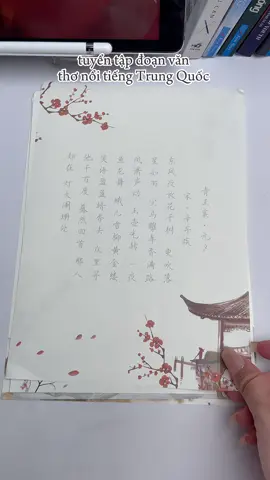 tuyển tập đoạn văn
thơ nổi tiếng Trung Quốc
青玉案·元夕
宋·辛弃疾
东风夜放花千树 更吹落
星如雨 宝马雕车香满路
凤箫声动 玉壶光转 一夜
鱼龙舞 蛾儿雪柳黄金缕
笑语盈盈暗香去 众里寻
他千百度 蓦然回首 那人
却在 灯火阑珊处